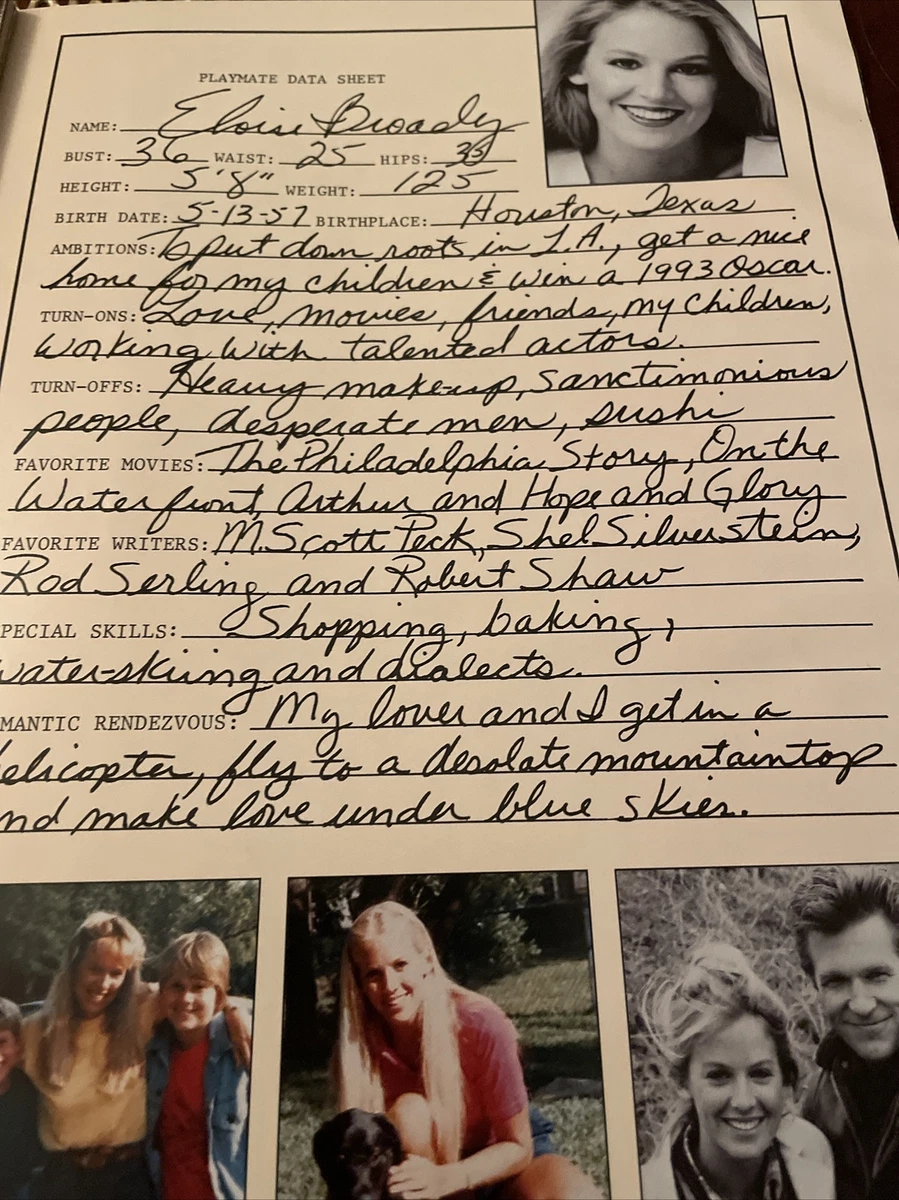 PLAYMATE DATA SHEET
NAME: Eloise Broady
BUST: 36 WAIST: 25 HIPS: 35
HEIGHT: 5'8" WEIGHT: 125
BIRTH DATE: 5-13-57 BIRTHPLACE: Houston, Texas
AMBITIONS: To put down roots in L.A., get a nice
home for my children & win a 1993 Oscar.
TURN-ONS: Love, movies, friends, my children,
working with talented actors.
TURN-OFFS: Heavy make-up, sanctimonious
people, desperate men, sushi
FAVORITE MOVIES: The Philadelphia Story, On the
Waterfront, Arthur and Hope and Glory
FAVORITE WRITERS: M. Scott Peck, Shel Silverstein,
Rod Serling and Robert Shaw
PECIAL SKILLS: Shopping, baking,
water-skiing and dialects.
MANTIC RENDEZVOUS: My lover and I get in a
elicopter, fly to a desolate mountaintop
nd make love under blue skies.